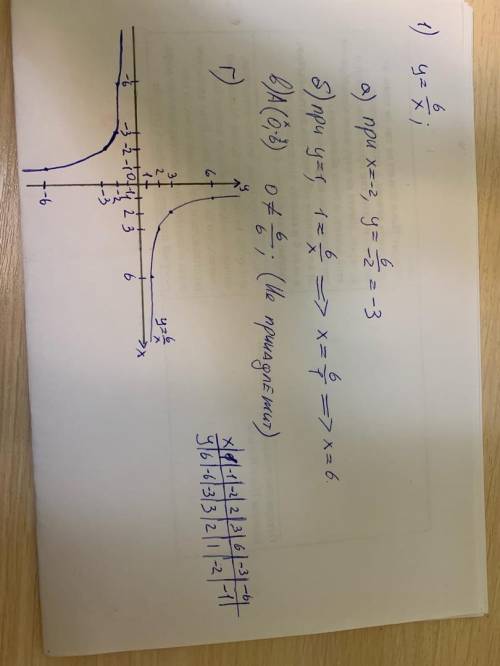 1) y = 6/x;
а) при x=-2, y = 6/-2 = -3
б) при y=1, 1 = 6/x => x = 6/1 => x = 6.
в) А(0;6) 0 ≠ 6/6; (Не принадлежит)
г)
y
6
3
2
1
-6 -3 -2 -1 0 1 2 3 6 x
-1
-2
-3
-6
y = 6/x
x | 1 | -1 | -2 | 2 | 3 | 6 | -3 | -6
y | 6 | -6 | -3 | 3 | 2 | 1 | -2 | -1